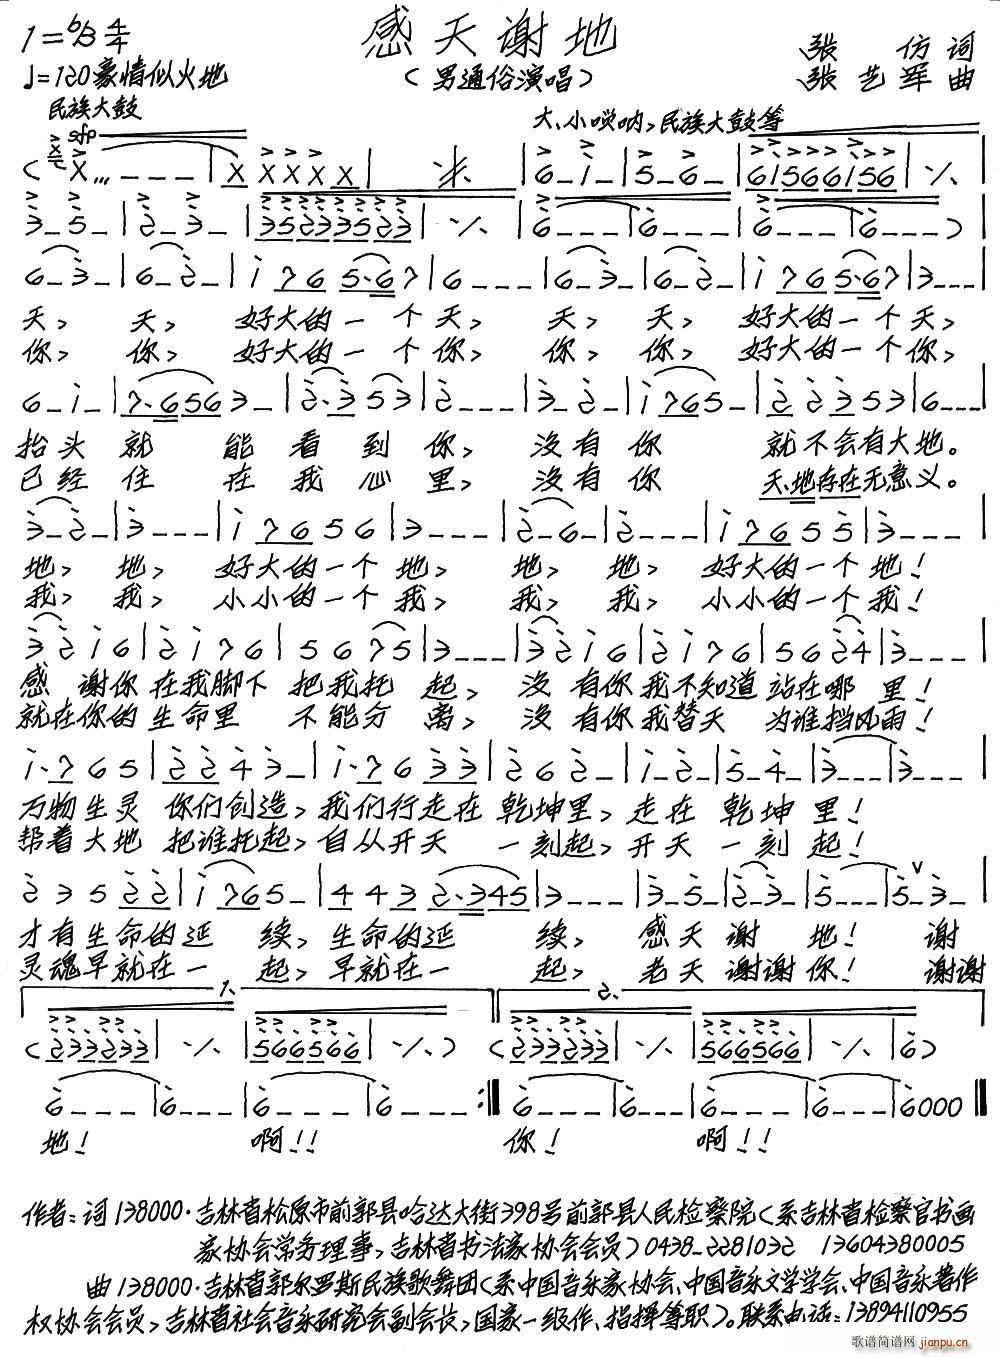 感天谢地
1=♭B 4/4
张仿 词
♩=120豪情似火地
（男通俗演唱）
张艺军 曲
民族大鼓
大、小唢呐，民族大鼓等
sfp
天， 天， 好大的一个天， 天， 天， 好大的一个天，
你， 你， 好大的一个你， 你， 你， 好大的一个你，
抬头就 能看到你， 没有你 就不会有大地。
已经住 在我心里， 没有你 天、地存在无意义。
地， 地， 好大的一个地， 地， 地， 好大的一个地！
我， 我， 小小的一个我， 我， 我， 小小的一个我！
感 谢你在我脚下 把我托 起， 没 有你我不知道 站在哪 里！
就在你的生命里 不能分 离， 没 有你我替天 为谁挡风雨！
万物生灵 你们创造，我们行走在 乾坤里，走在 乾坤 里！
帮着大地 把谁托起，自从开天 一刻起，开天 一刻 起！
才有生命的延 续，生命的延 续， 感天谢 地！ 谢
灵魂早就在一 起，早就在一 起， 老天谢谢你！ 谢谢
1、
2、
地！ 啊！！ 你！ 啊！！
作者：词138000·吉林省松原市前郭县哈达大街398号前郭县人民检察院（系吉林省检察官书画
家协会常务理事，吉林省书法家协会会员）0438—2281032 13604380005
曲138000·吉林省郭尔罗斯民族歌舞团（系中国音乐家协会、中国音乐文学学会、中国音乐著作
权协会会员，吉林省社会音乐研究会副会长，国家一级作、指挥等职）。联系电话：13894110955
歌谱简谱网
jianpu.cn